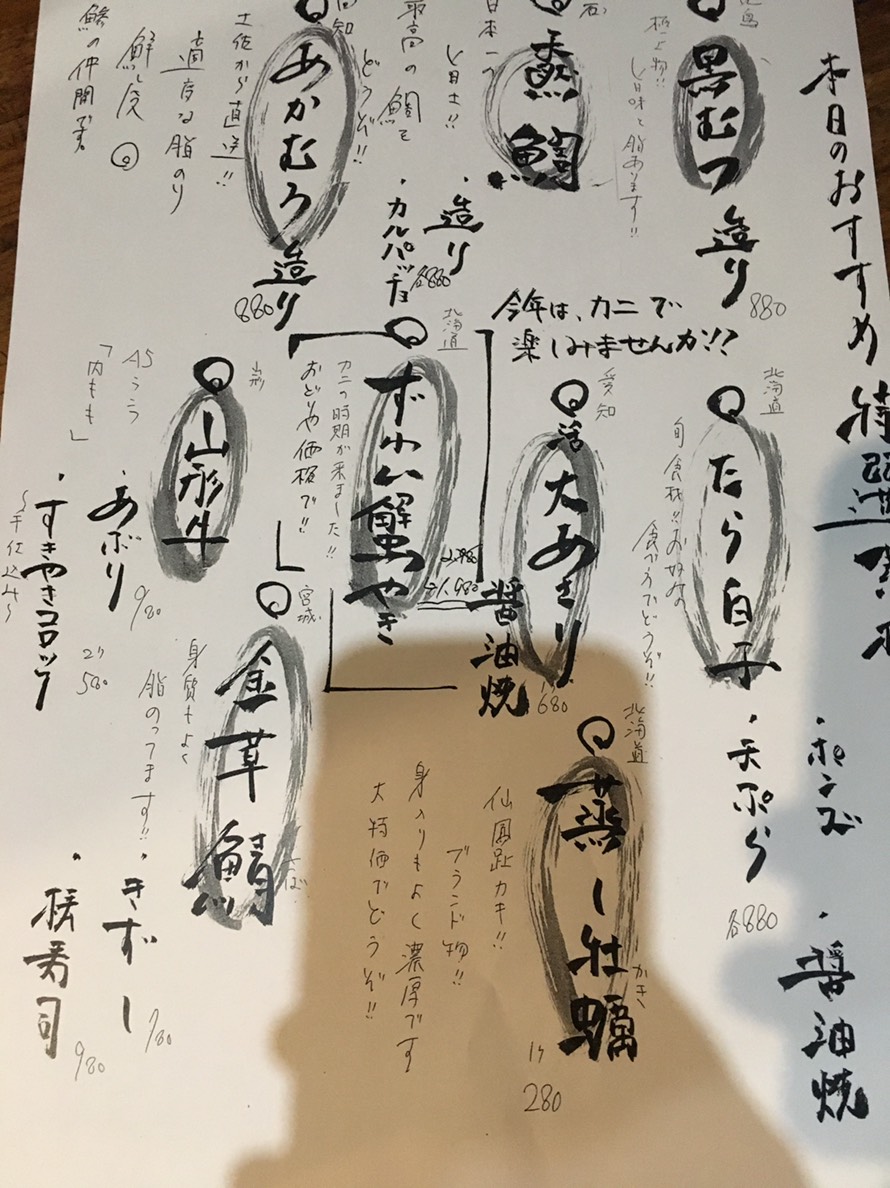 本日のおすすめ
黒むつ
造り
880
極上物!!
旨味と脂あります!!
天然鯛
・造り
・カルパッチョ
各880
日本一うし日土!!
最高の鯛を
どうぞ!!
高知
あかむろ
造り
880
土佐から直送!!
適度な脂のり
鮮度◎
鯵の仲間です。
今年は、カニで
楽しみませんか!?
北海道
たら白子
旬食材!!お好みの
食べ方でどうぞ!!
・ポンズ
・醤油焼
・天ぷら
各880
愛知
活大あさり
醤油焼
1ケ
680
北海道
ずわい蟹やき
2,980
→1,980
カニの時期が来ました!!
おどりや価格で!!
山形
山形牛
A5ランク
「内もも」
・あぶり
980
・すきやきコロッケ
2ケ
580
〜手仕込み〜
北海道
蒸し牡蠣
かき
1ケ
280
仙鳳趾カキ!!
ブランド物!!
身入りもよく濃厚です
大特価でどうぞ!!
宮城
金華鯖
さば
身質もよく
脂のってます!!
・きずし
980
・棒寿司
980